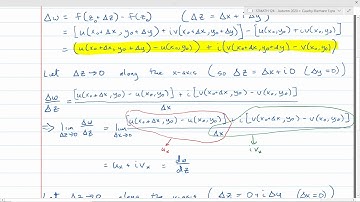 Δw = f(z₀+Δz) - f(z₀) (Δz = Δx + iΔy)
= [u(x₀+Δx, y₀+Δy) + iv(x₀+Δx, y₀+Δy)] - [u(x₀,y₀) + iv(x₀,y₀)]
= u(x₀+Δx, y₀+Δy) - u(x₀,y₀) + i[v(x₀+Δx, y₀+Δy) - v(x₀,y₀)]
Let Δz→0 along the x-axis (so Δz = Δx + i0 (Δy=0)
Δw/Δz = [u(x₀+Δx, y₀) - u(x₀,y₀)] + i[v(x₀+Δx, y₀) - v(x₀,y₀)] / Δx
⇒ lim Δz→0 Δw/Δz = lim Δx→0 [u(x₀+Δx, y₀) - u(x₀,y₀)] + i[v(x₀+Δx, y₀) - v(x₀,y₀)] / Δx
uₓ i vₓ
= uₓ + ivₓ = dw/dz
Let Δz→0 along the x-axis (Δz = 0 + iΔy (Δx=0)